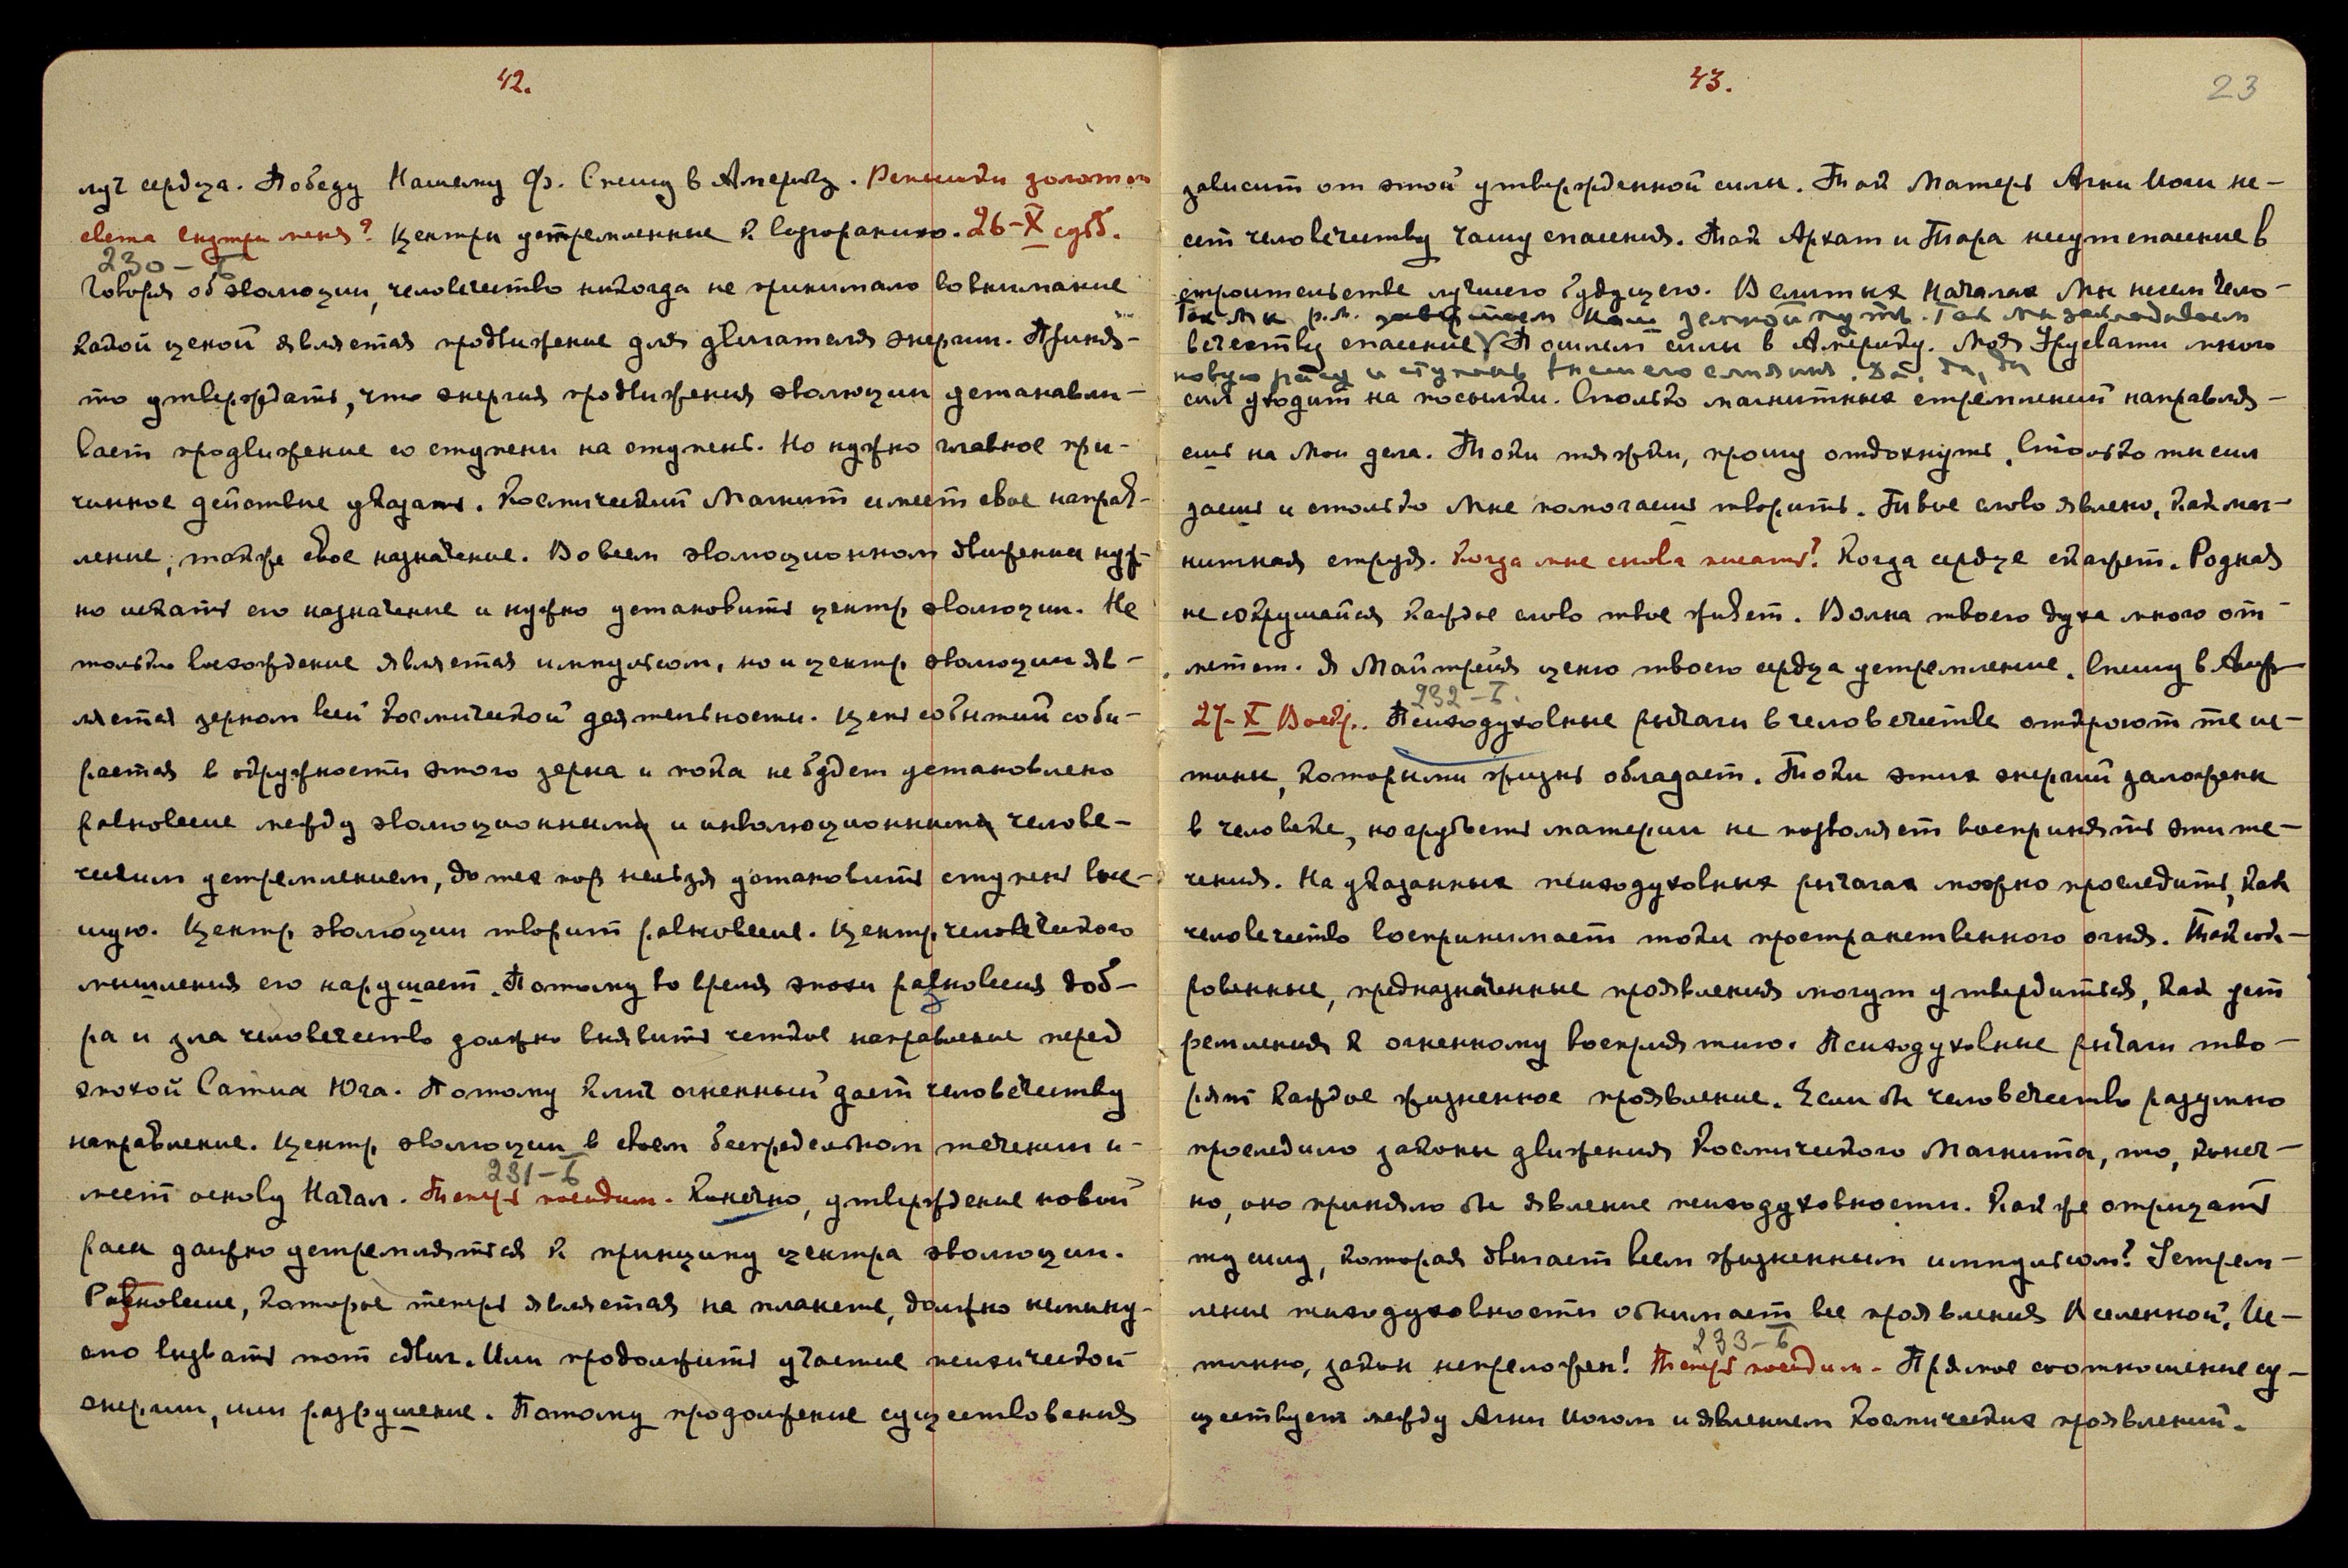 42.
луч сердца. Победу Нашему Ф. Спешу в Америку. Рекшиди золотого
света внутри меня? Центры устремленные к возгоранию. 26-X субб.
230-I
Говоря об эволюции, человечество никогда не принимало во внимание
какой ценой является продвижение для двигателя энергии. Приня-
то утверждать, что энергия продвижения эволюции устанавли-
вает продвижение со ступени на ступень. Но нужно главное при-
чинное действие указать. Космический Магнит имеет свое направ-
ление, также свое назначение. Во всем эволюционном движении нуж-
но искать его назначение и нужно установить центр эволюции. Не
только восхождение является импульсом, но и центр эволюции яв-
ляется зерном всей космической деятельности. Цепь событий соби-
рается в окружности этого зерна и пока не будет установлено
равновесие между эволюционным и инволюционным челове-
ческим устремлением, до тех пор нельзя установить ступень выс-
шую. Центр эволюции творит равновесие. Центр человеческого
мышления его нарушает. Потому во время эпохи равновесия доб-
ра и зла человечество должно выявить четкое направление перед
эпохой Сатиа Юга. Потому ключ огненный дает человечеству
направление. Центр эволюции в своем беспредельном течении и-
231-I
меет основу Начал. Теперь посидим. Конечно, утверждение новой
расы должно устремляться к принципу центра эволюции.
Равновесие, которое теперь является на планете, должно немину-
емо вызвать тот сдвиг. Или продолжить участие психической
энергии, или разрушение. Потому продолжение существования
43.
23
зависит от этой утвержденной силы. Так Матерь Агни Йоги не-
сет человечеству чашу спасения. Так Архат и Тара несут спасение в
строительстве лучшего будущего. В слитных Началах Мы несем чело-
Так Мы р.м. завершаем Наш земной путь. Так мы закладываем
вечеству спасение V Пошлем силы в Америку. Моя Урусвати много
новую расу и ступень высшего слияния. Да, да, да
сил уходит на посылки. Столько магнитных стремлений направля-
ешь на Мои дела. Токи тяжки, прошу отдохнуть. Столько ты сил
даешь и столько Мне помогаешь творить. Твое слово явлено, как маг-
нитная струя. Когда мне снова писать? Когда сердце скажет. Родная
не сокрушайся каждое слово твое живет. Волна твоего духа много от
метет. Я Майтрейя ценю твоего сердца устремление. Спешу в Амер
232-I.
27-X Воскр. Психодуховные рычаги в человечестве откроют те ис-
тины, которыми жизнь обладает. Токи этих энергий заложены
в человеке, но грубость материи не позволяет воспринять эти те-
чения. На указанных психодуховных рычагах можно проследить, как
человечество воспринимает токи пространственного огня. Так соки-
ровенные, предназначенные проявления могут утвердиться, как уст
ремления к огненному восприятию. Психодуховные рычаги тво-
рят каждое жизненное проявление. Если бы человечество разумно
проследило законы движения Космического Магнита, то, конеч-
но, оно приняло бы явление психодуховности. Как же отрицать
ту силу, которая двигает всем жизненным импульсом? Устрем-
ление психодуховности обнимает все проявления Вселенной. Ис-
233-I
тинно, закон непреложен! Теперь посидим. Прямое соотношение су-
ществует между Агни Йогом и явлением Космических проявлений.